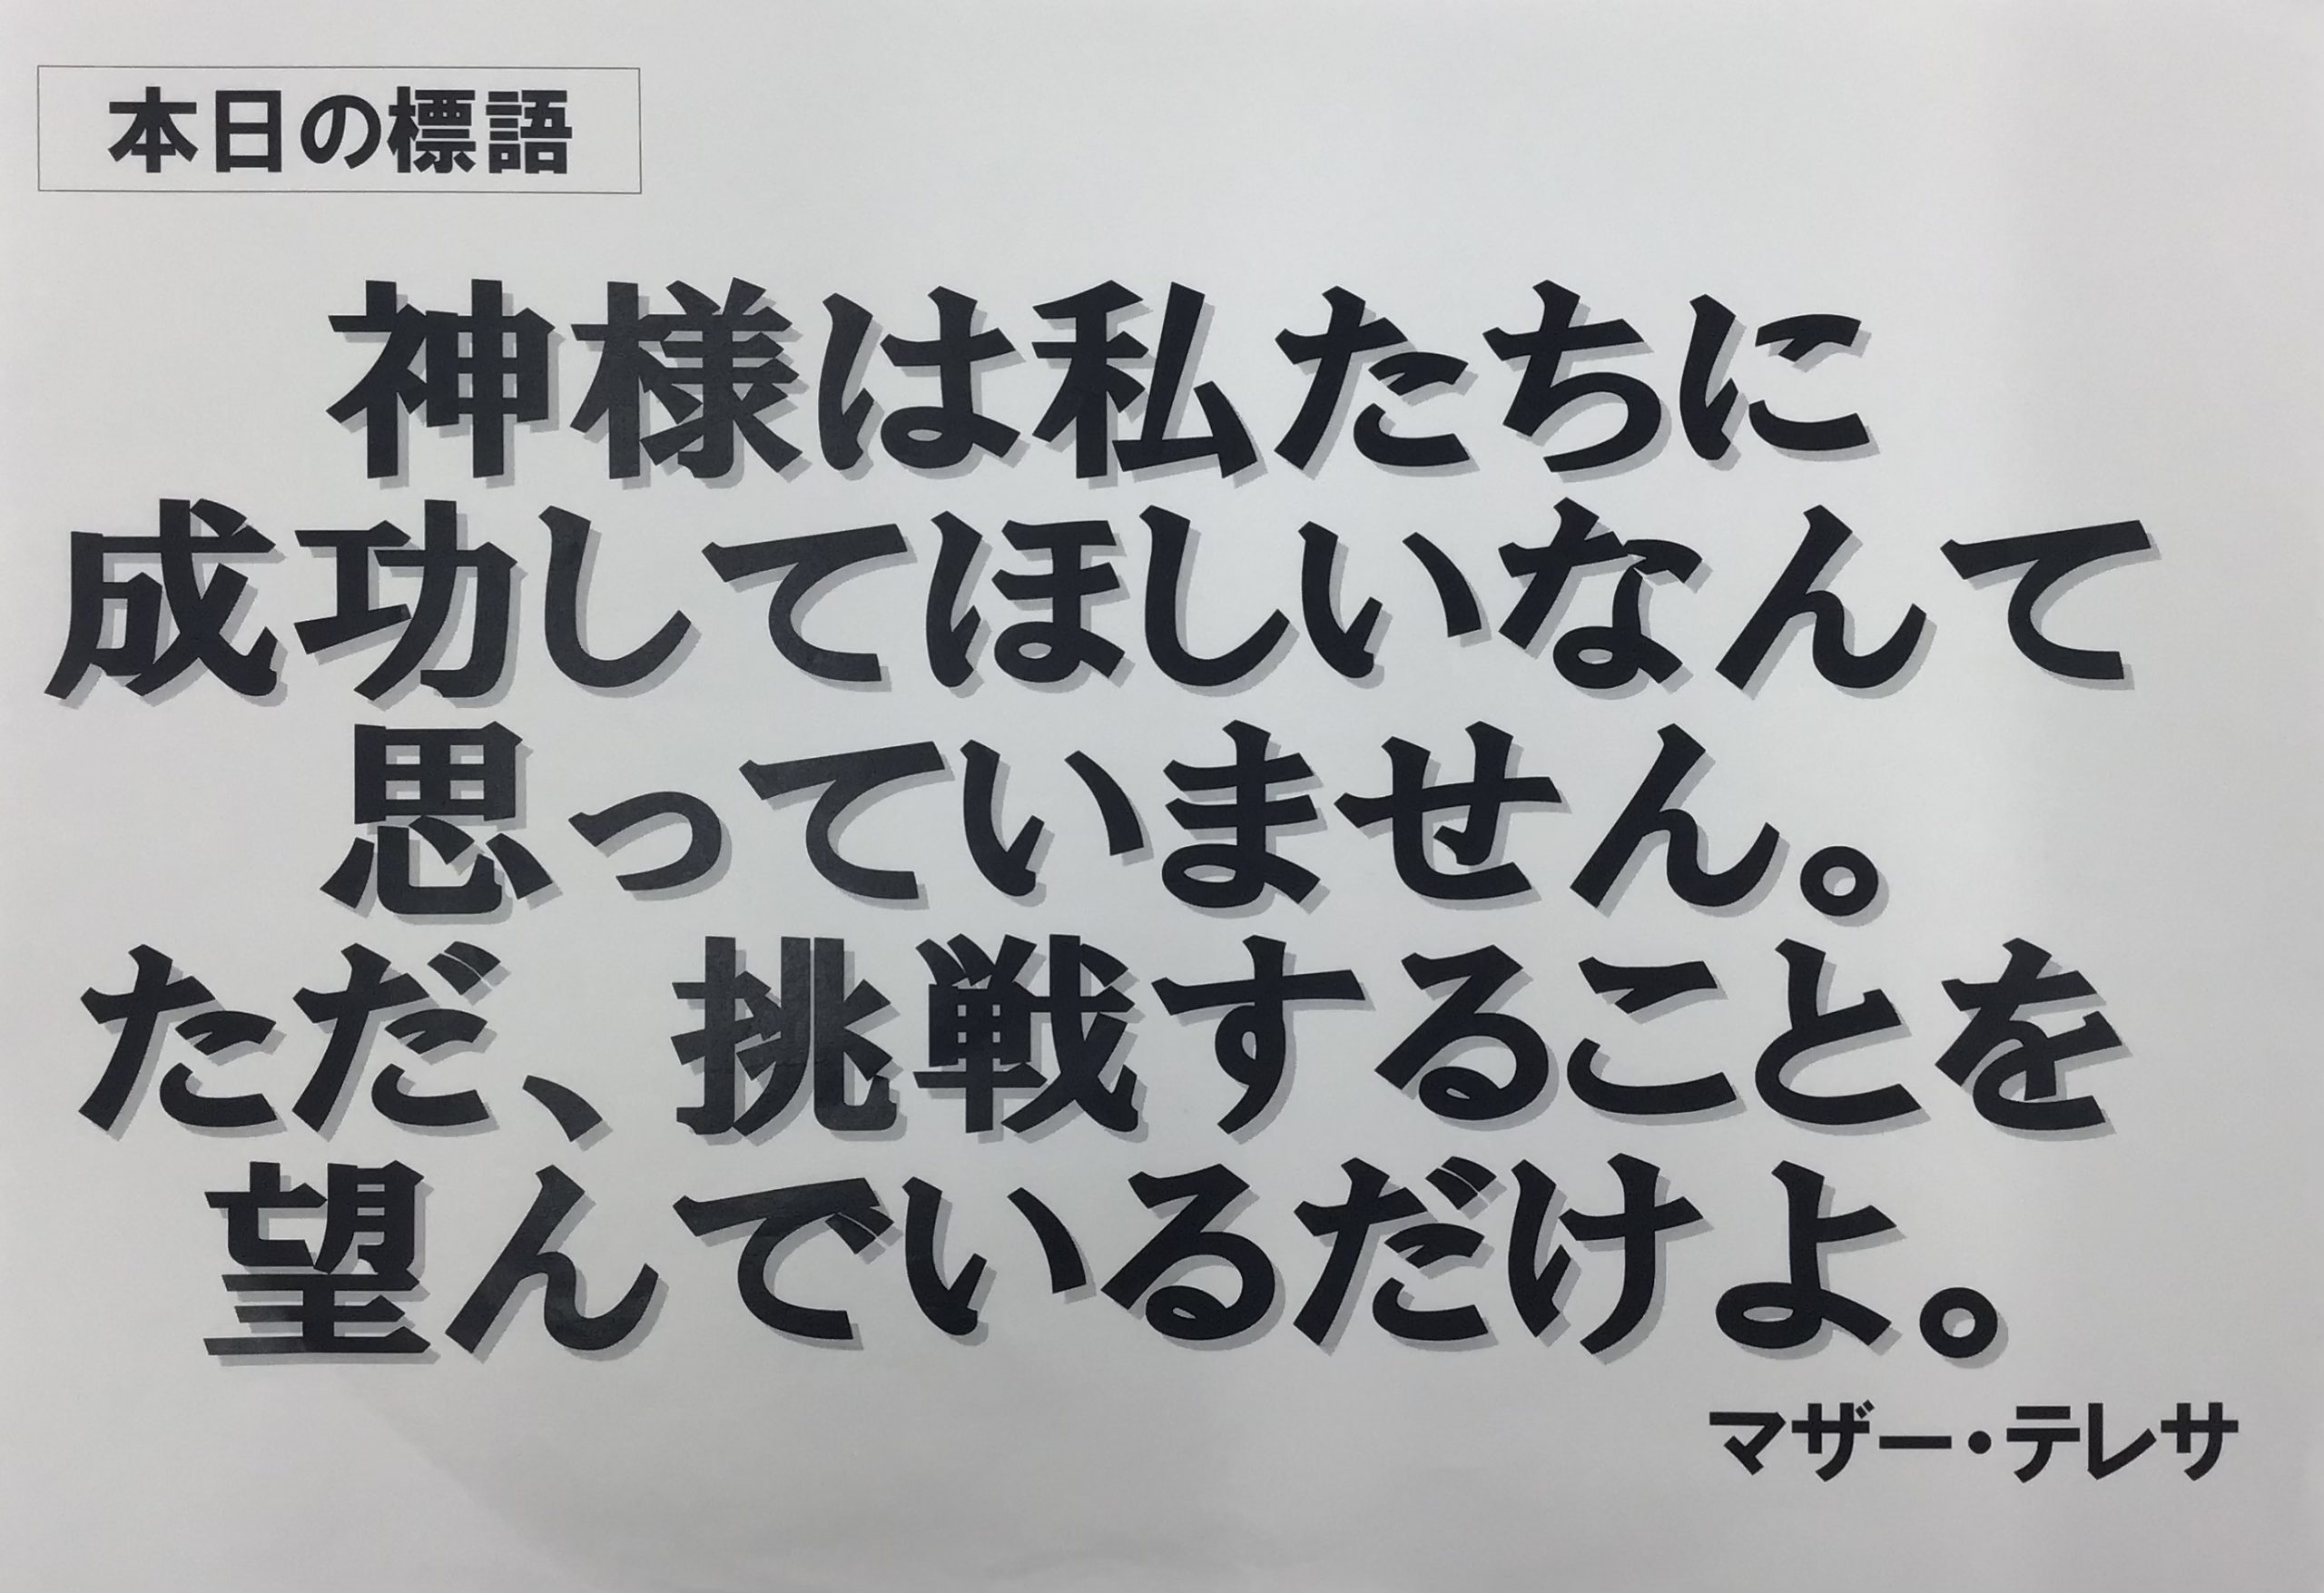 本日の標語
神様は私たちに
成功してほしいなんて
思っていません。
ただ、挑戦することを
望んでいるだけよ。
マザー・テレサ